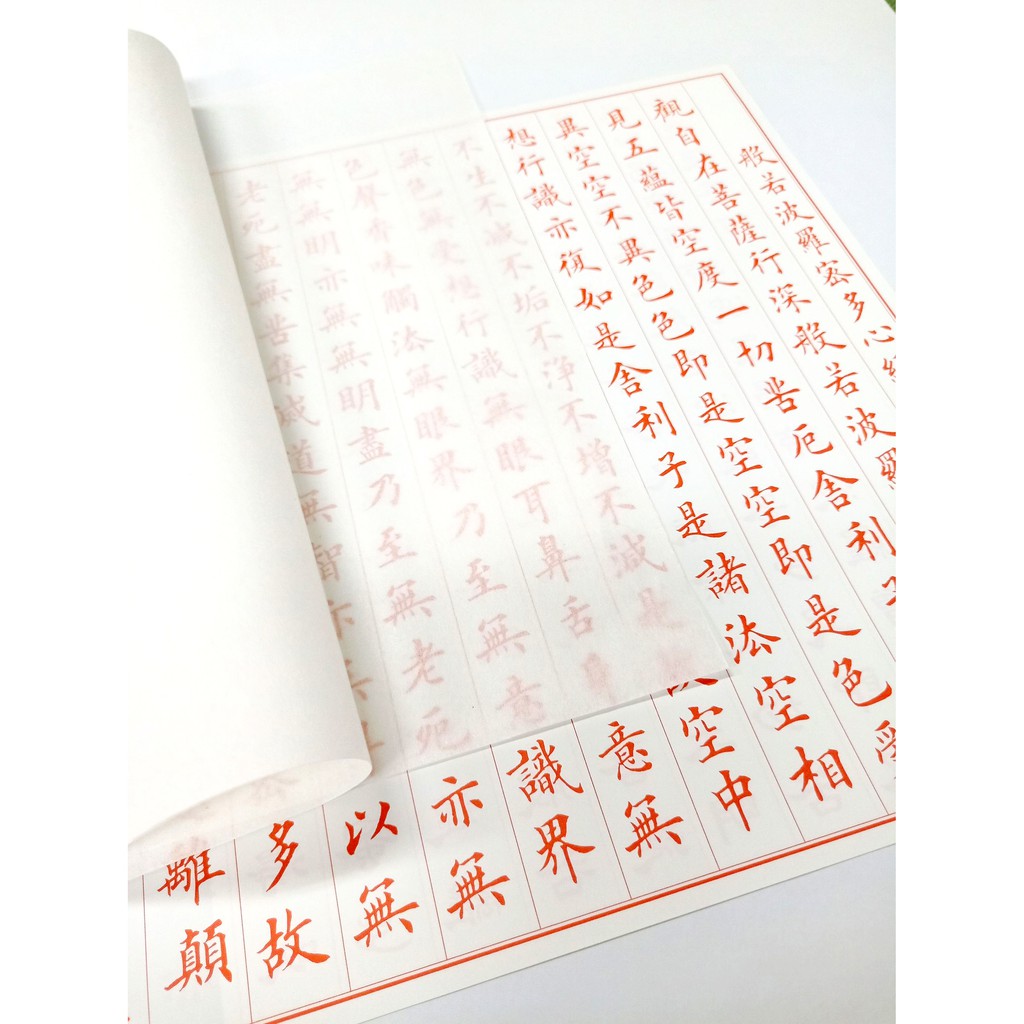 般若波羅密多心
觀自在菩薩行深般若波羅
見五蘊皆空度一切苦厄舍利
異空空不異色色即是空空即是色受
想行識亦復如是舍利子是諸法空相
不生不滅不垢不淨不增不減是故空中
無色無受想行識無眼耳鼻舌身意無
色聲香味觸法無眼界乃至無意識界
無無明亦無無明盡乃至無老死亦無
老死盡無苦集滅道無智亦無以無
多故
離顛